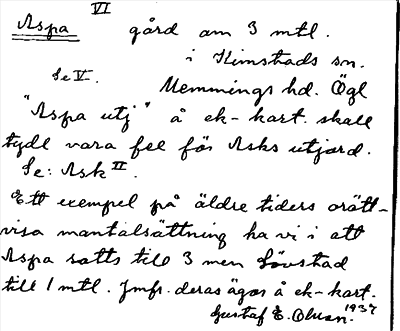 Aspa VI gård om 3 mtl.
i Kimstads sn.
Se V. Memmings hd. Ögl
"Aspa utj" å ek-kart. skall
tydl vara fel för Asks utjord.
Se: Ask II.
Ett exempel på äldre tiders orätt-
visa mantalsättning ha vi i att
Aspa satts till 3 men Lövstad
till 1 mtl. Jmfr. deras ägor å ek-kart.
Gustaf E. Olsson. 1937